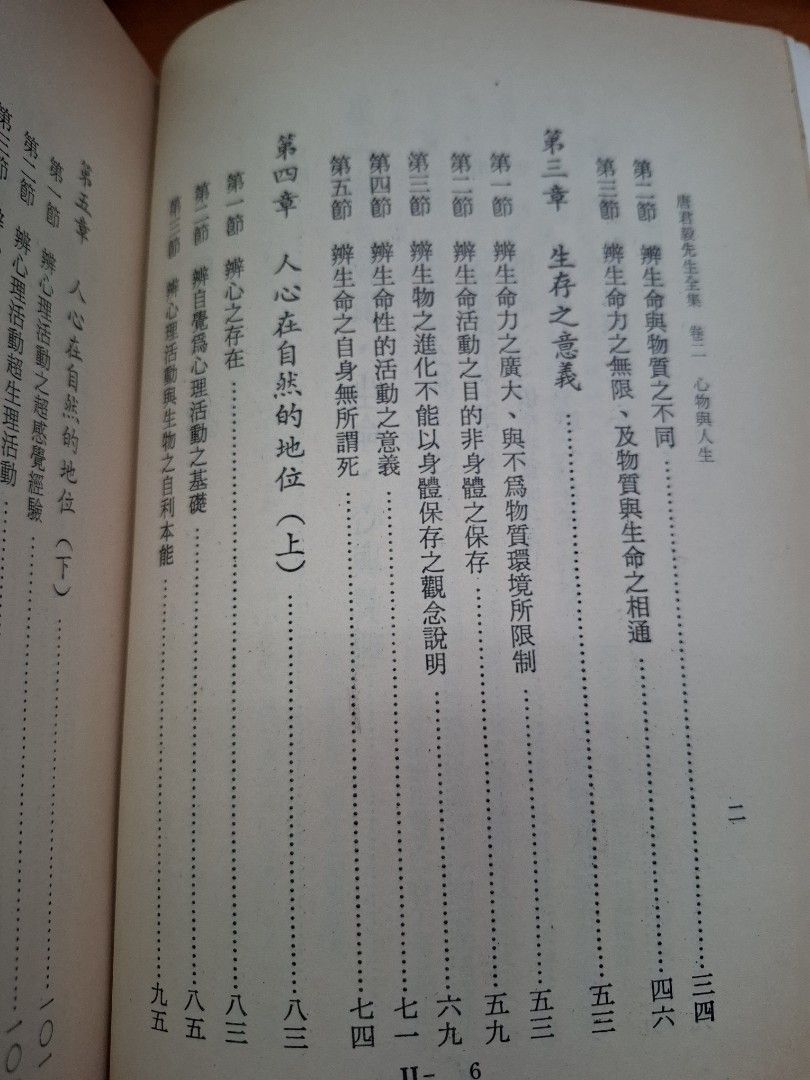 唐君毅先生全集 卷二 心物與人生
二
第二節 辨生命與物質之不同……三四
第三節 辨生命力之無限、及物質與生命之相通……四六
第三章 生存之意義……五三
第一節 辨生命力之廣大、與不爲物質環境所限制……五三
第二節 辨生命活動之目的非身體之保存……五九
第三節 辨生物之進化不能以身體保存之觀念說明……六九
第四節 辨生命性的活動之意義……七一
第五節 辨生命之自身無所謂死……七四
第四章 人心在自然的地位（上）……八三
第一節 辨心之存在……八三
第二節 辨自覺爲心理活動之基礎……八五
第三節 辨心理活動與生物之自利本能……九五
II- 6
第五章 人心在自然的地位（下）……一〇一
第一節 辨心理活動之超感覺經驗……一〇一
第二節 辨心理活動超生理活動
第三節